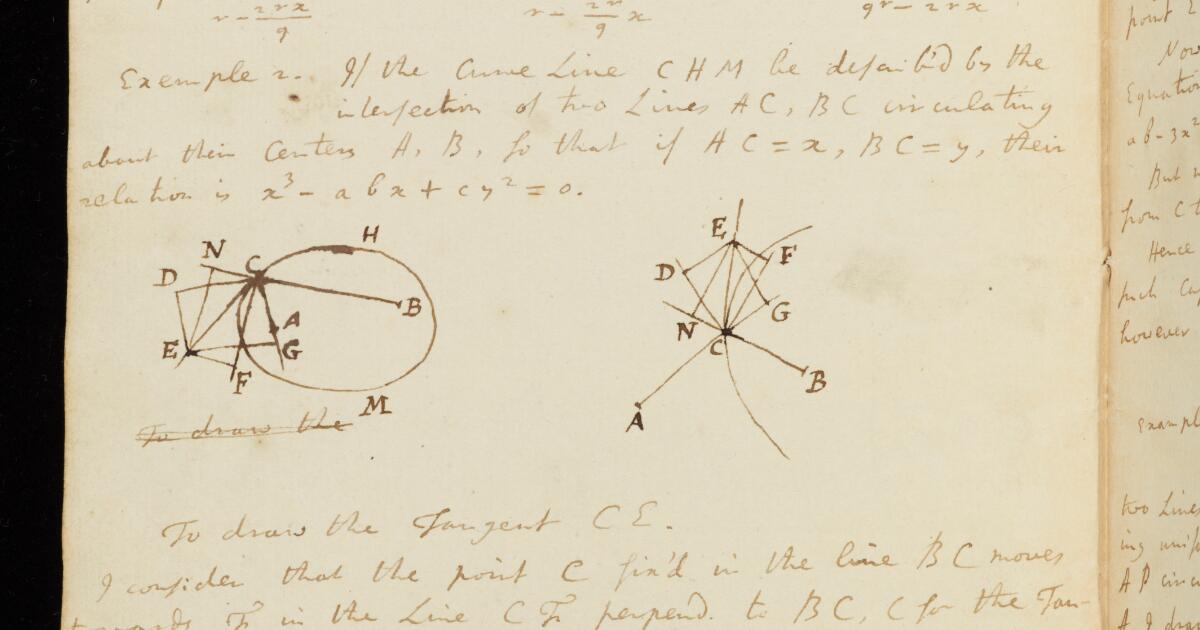 r - 2rx/q
r - 2r/q x
qr - 2rx
Example 2. If the Curve Line CHM be describ'd by the
intersection of two Lines AC, BC circulating
about their Centers A, B, so that if AC = x, BC = y, their
relation is x³ - abx + cy² = 0.
N
C
H
D
B
A
E
G
F
M
To draw the
E
F
D
G
N
C
B
A
To draw the Tangent CE.
I consider that the point C fix'd in the line BC moves
towards F in the Line CF perpend. to BC, C for the Tan-
point
Now
Equation
ab - 3x²
But
from C
Hence
such
however
Exampl
two Lines
ing
AP
A